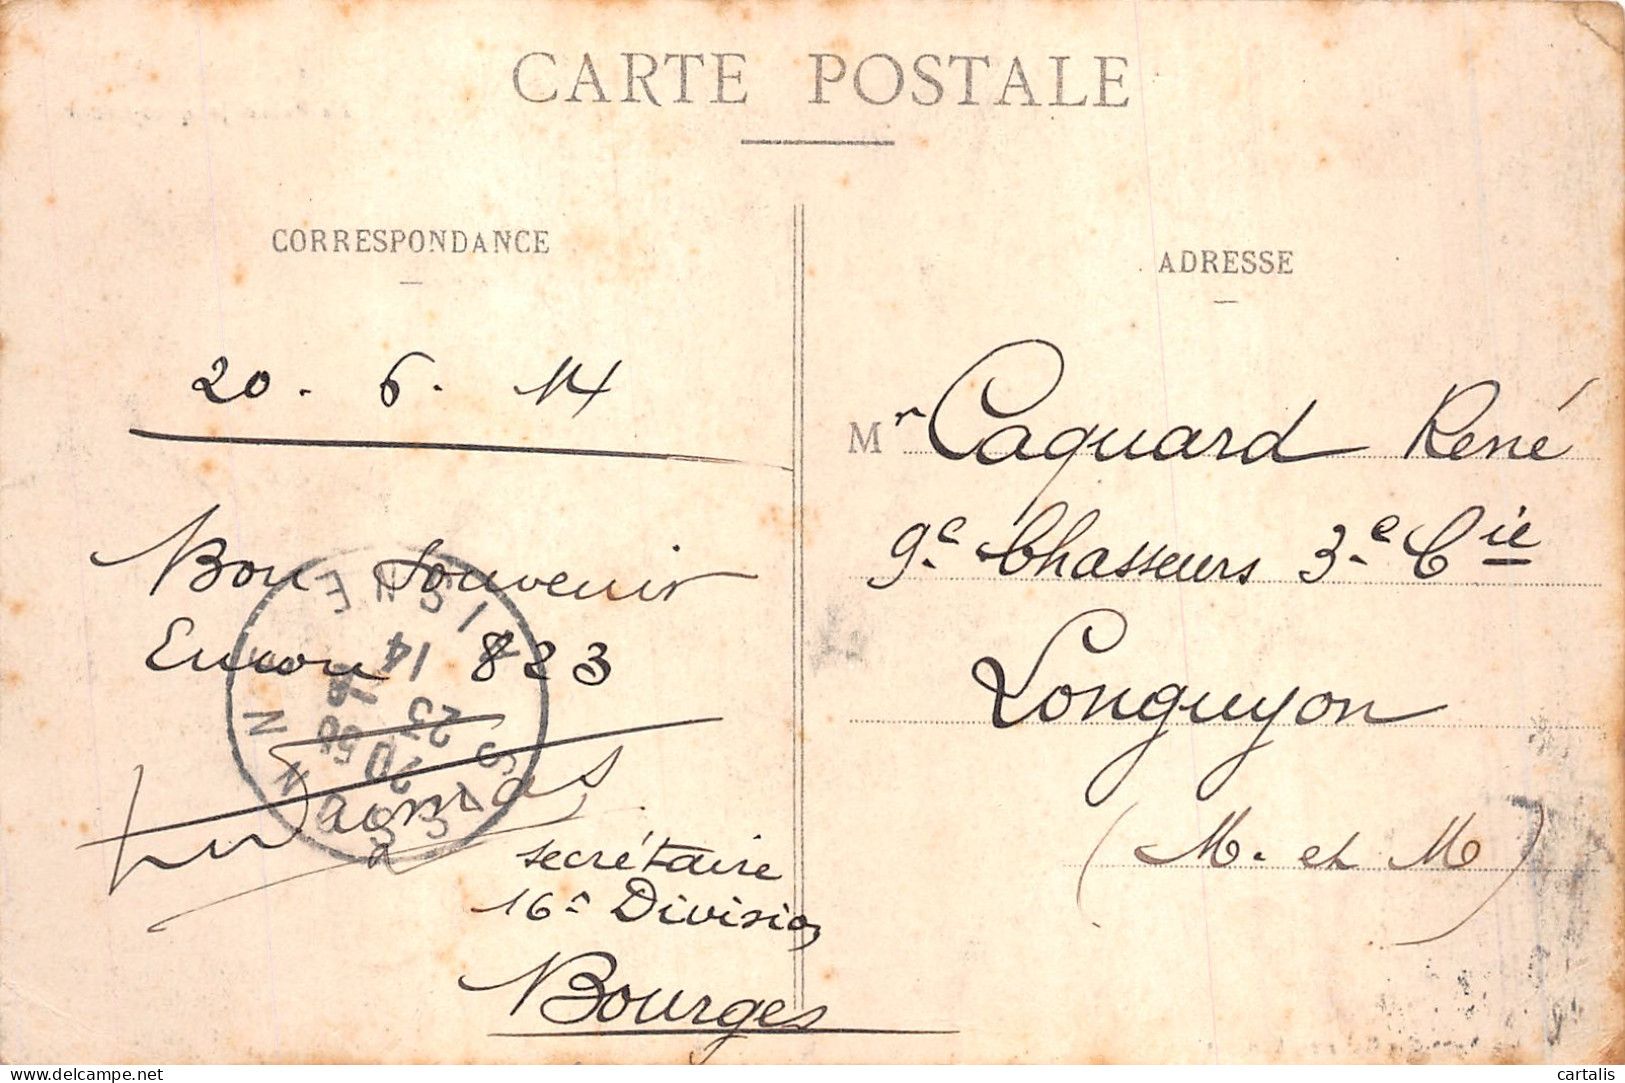 CARTE POSTALE
CORRESPONDANCE
20. 6. 14
Bon Souvenir
Encore 823
secrétaire
16e Division
Bourges
ADRESSE
Mr Caquard René
9e Chasseurs 3e Cie
Longuyon
(M. et M)
14
23
20 50
www.delcampe.net
cartalis